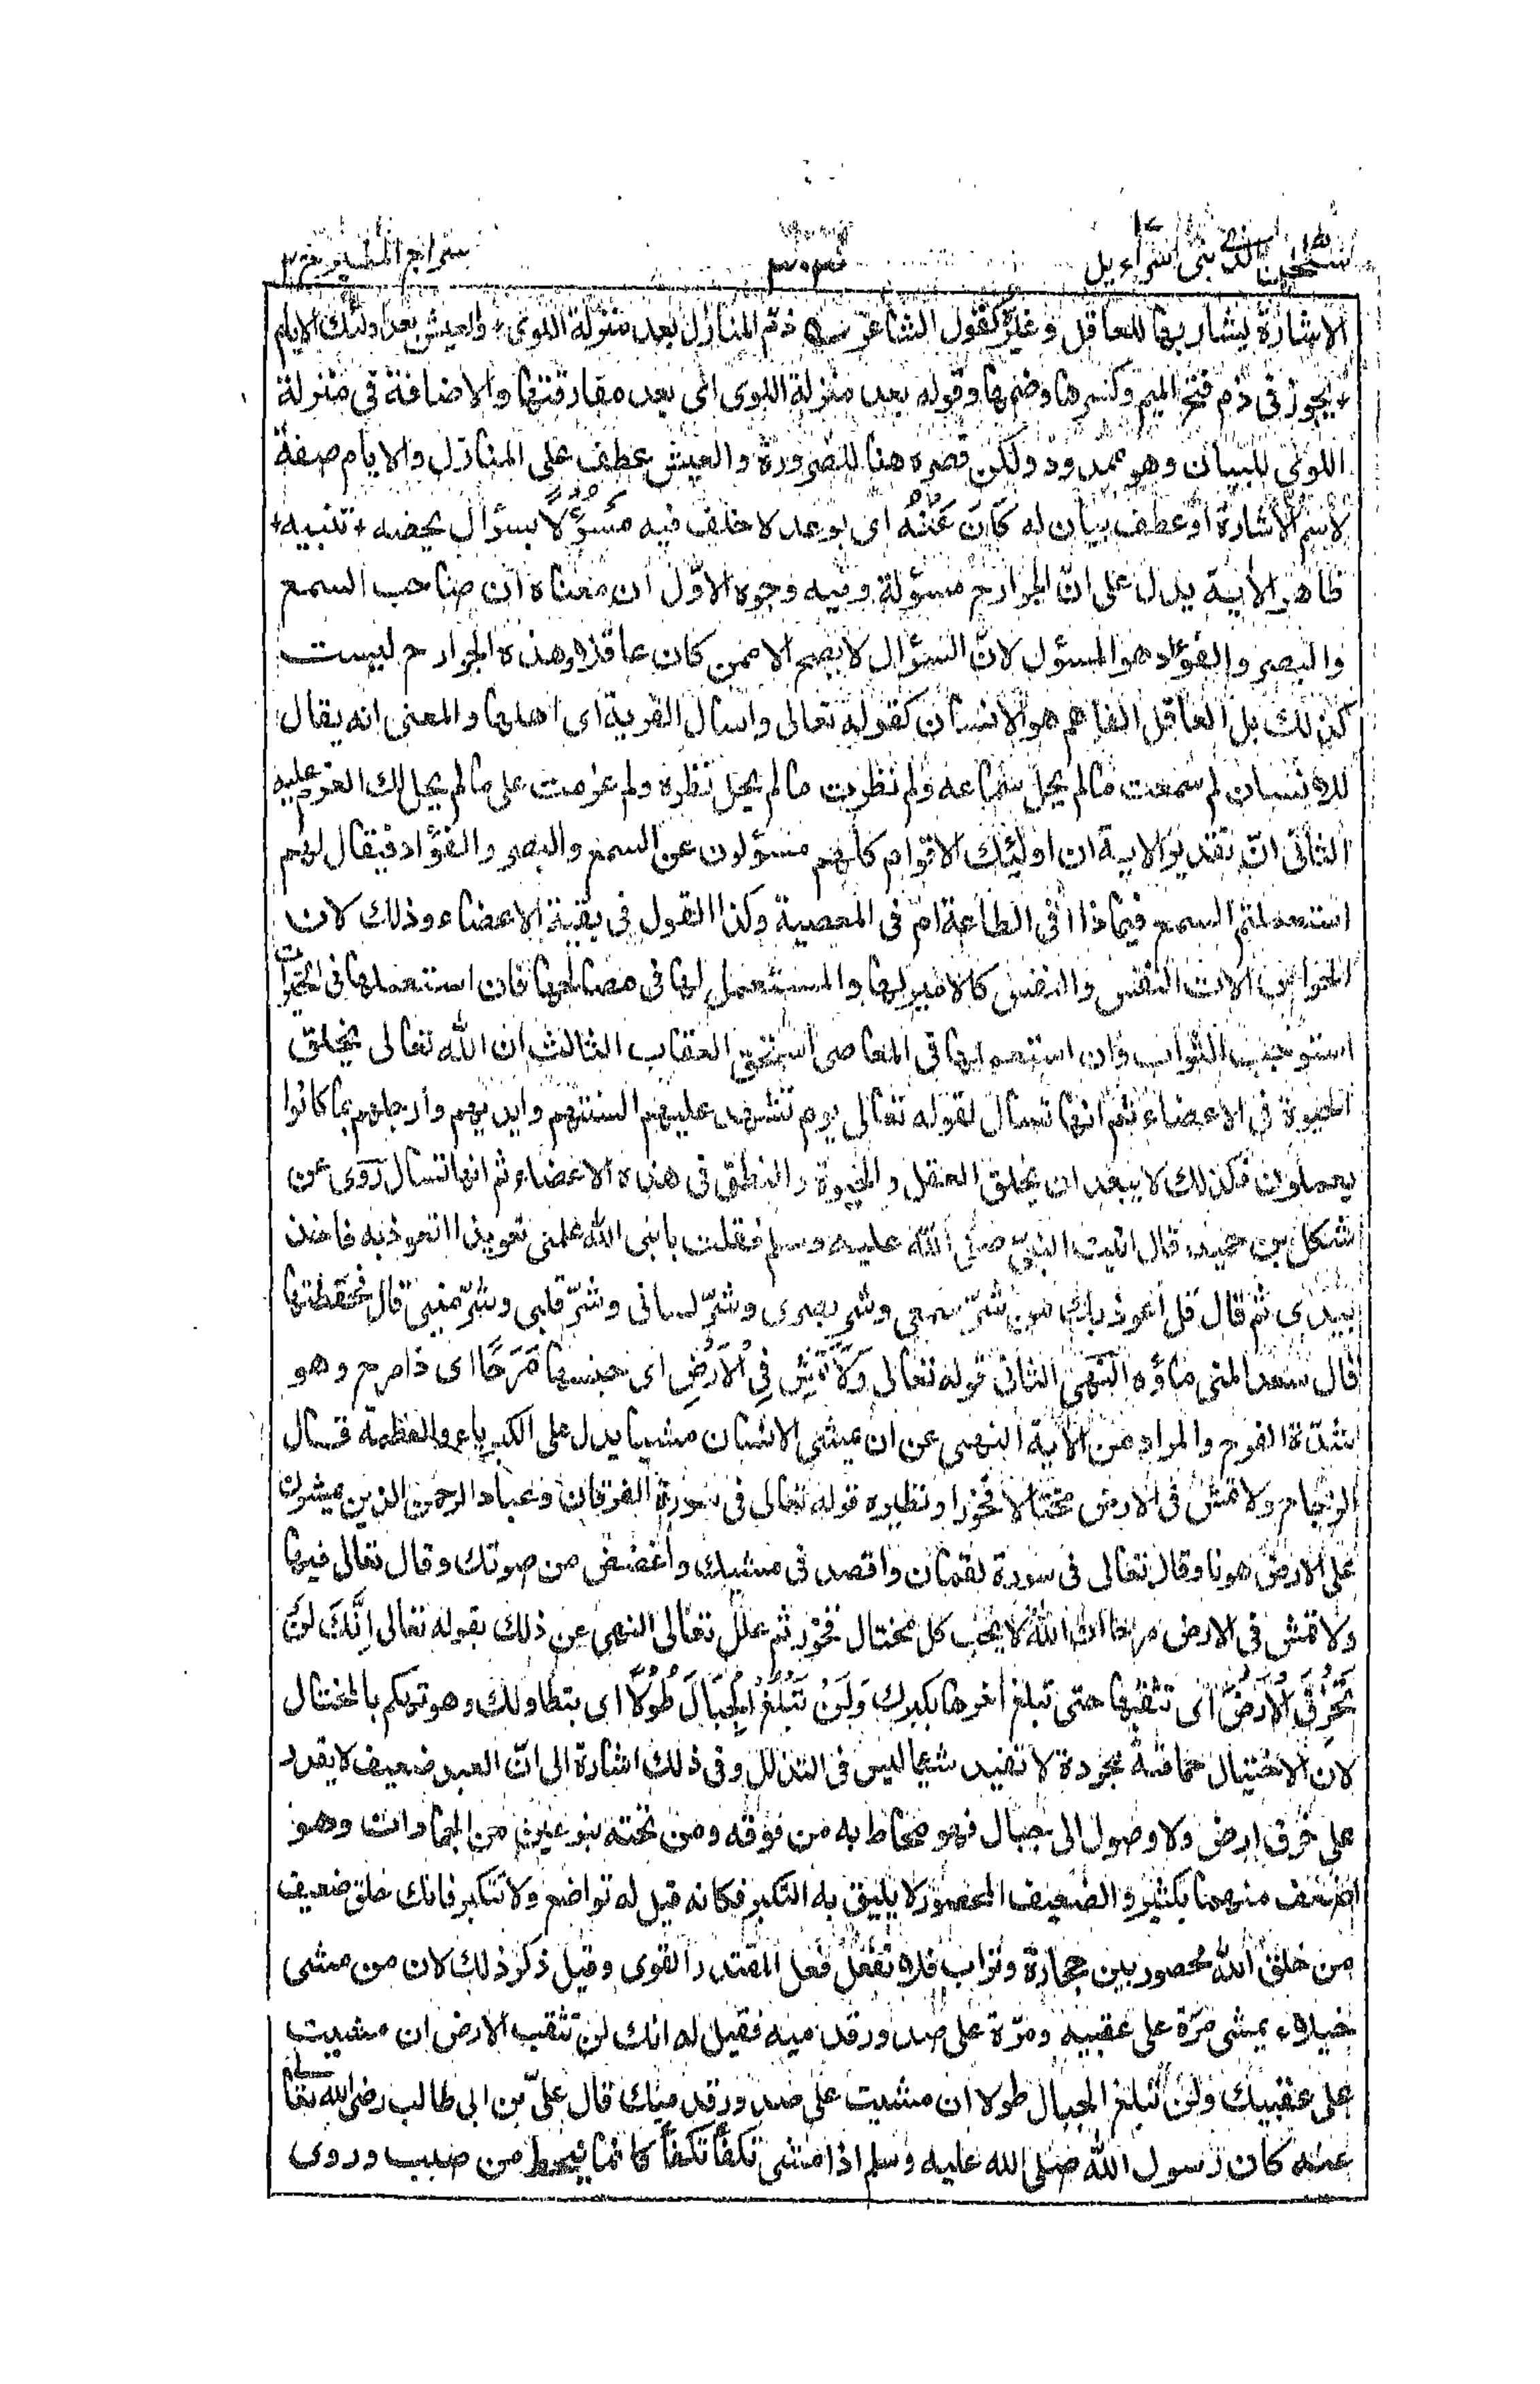 سبحن الذى بنى اسراءيل
٣٠٣
سراج المنير ج ٢
الاشارة يشار بها للعاقل وغيره كقول الشاعر ذم المنازل بعد منزلة اللوى + والعيش بعد اولئك الايام
+ يجوز فى ذم فتح الميم وكسرها وضمها وقوله بعد منزلة اللوى اى بعد مفارقتها والاضافة فى منزلة
اللوى للبيان وهو ممدود ولكن قصره هنا للضرورة والعيش عطف على المنازل والايام صفة
لاسم الاشارة او عطف بيان له كَانَ عَنْهُ اى بوعد لا خلف فيه مَسْؤُلًا بسؤال يخصه + تنبيه +
ظاهر الاية يدل على انّ الجوارح مسؤلة وفيه وجوه الاوّل ان معناه ان صاحب السمع
والبصر والفؤاد هو المسؤل لانّ السؤال لا يصح الا ممن كان عاقلا وهذه الجوارح ليست
كذلك بل العاقل الفاهم هو الانسان كقوله تعالى واسال القرية اى اهلها والمعنى انه يقال
للانسان لم سمعت مالم يحل سماعه ولم نظرت مالم يحل نظره ولم عزمت على مالم يحل لك العزم عليه
الثانى انّ تقدير الاية ان اولئك الاقوام كلهم مسؤلون عن السمع والبصر والفؤاد فيقال لهم
استعملتم السمع فيماذا افى الطاعة ام فى المعصية وكذا القول فى بقية الاعضاء وذلك لان
الحواس الات النفس والنفس كالامير لها والمستعمل لها فى مصالحها فان استعملها فى الخيرات
استوجب الثواب وان استعملها فى المعاصى استحق العقاب الثالث ان الله تعالى يخلق
الحيوة فى الاعضاء ثم انها تسال لقوله تعالى يوم تشهد عليهم السنتهم وايديهم وارجلهم بما كانوا
يعملون فكذلك لا يبعد ان يخلق العقل والحيوة والنطق فى هذه الاعضاء ثم انها تسال روى عن
شكل بن حميد قال اتيت النبىّ صلى الله عليه وسلم فقلت يا نبى الله علمنى تعويذا اتعوذ به فاخذ
بيدى ثم قال قل اعوذ بك من شرّ سمعى وشر بصرى وشرّ لسانى وشرّ قلبى وشرّ منيى قال فحفظتها
قال سعد المنى ماؤه النهى الثانى قوله تعالى وَلَا تَمْشِ فِى الْاَرْضِ اى جنسها مَرَحًا اى ذا مرح وهو
شدّة الفرح والمراد من الاية النهى عن ان يمشى الانسان مشيا يدل على الكبرياء والعظمة قال
الزجاج ولا تمش فى الارض مختالا فخورا ونظيره قوله تعالى فى سورة الفرقان وعباد الرحمن الذين يمشون
على الارض هونا وقال تعالى فى سورة لقمان واقصد فى مشيك واغضض من صوتك وقال تعالى فيها
ولا تمش فى الارض مرحا ان الله لا يحب كل مختال فخور ثم علل تعالى النهى عن ذلك بقوله تعالى اِنَّكَ لَنْ
تَخْرِقَ الْاَرْضَ اى تثقبها حتى تبلغ اخرها بكبرك وَلَنْ تَبْلُغَ الْجِبَالَ طُوْلًا اى بتطاولك وهو تهكم بالمختال
لان الاختيال حماقة مجردة لا تفيد شيئا ليس فى التذلل وفى ذلك اشارة الى انّ العبد ضعيف لا يقدر
على خرق ارض ولا وصول الى جبال فهو محاط به من فوقه ومن تحته بنوعين من الجمادات وهو
اضعف منهما بكثير والضعيف المحصور لا يليق به التكبر فكانه قيل له تواضع ولا تتكبر فانك خلق ضعيف
من خلق الله محصور بين حجارة وتراب فلا تفعل فعل المقتدر القوى وقيل ذكر ذلك لان من مشى
خيلاء يمشى مرّة على عقبيه ومرّة على صدور قدميه فقيل له انك لن تثقب الارض ان مشيت
على عقبيك ولن تبلغ الجبال طولا ان مشيت على صدور قدميك قال علىّ بن ابى طالب رضى الله تعالى
عنه كان رسول الله صلى الله عليه وسلم اذا مشى تكفأ تكفأ كانما ينحط من صبب وروى